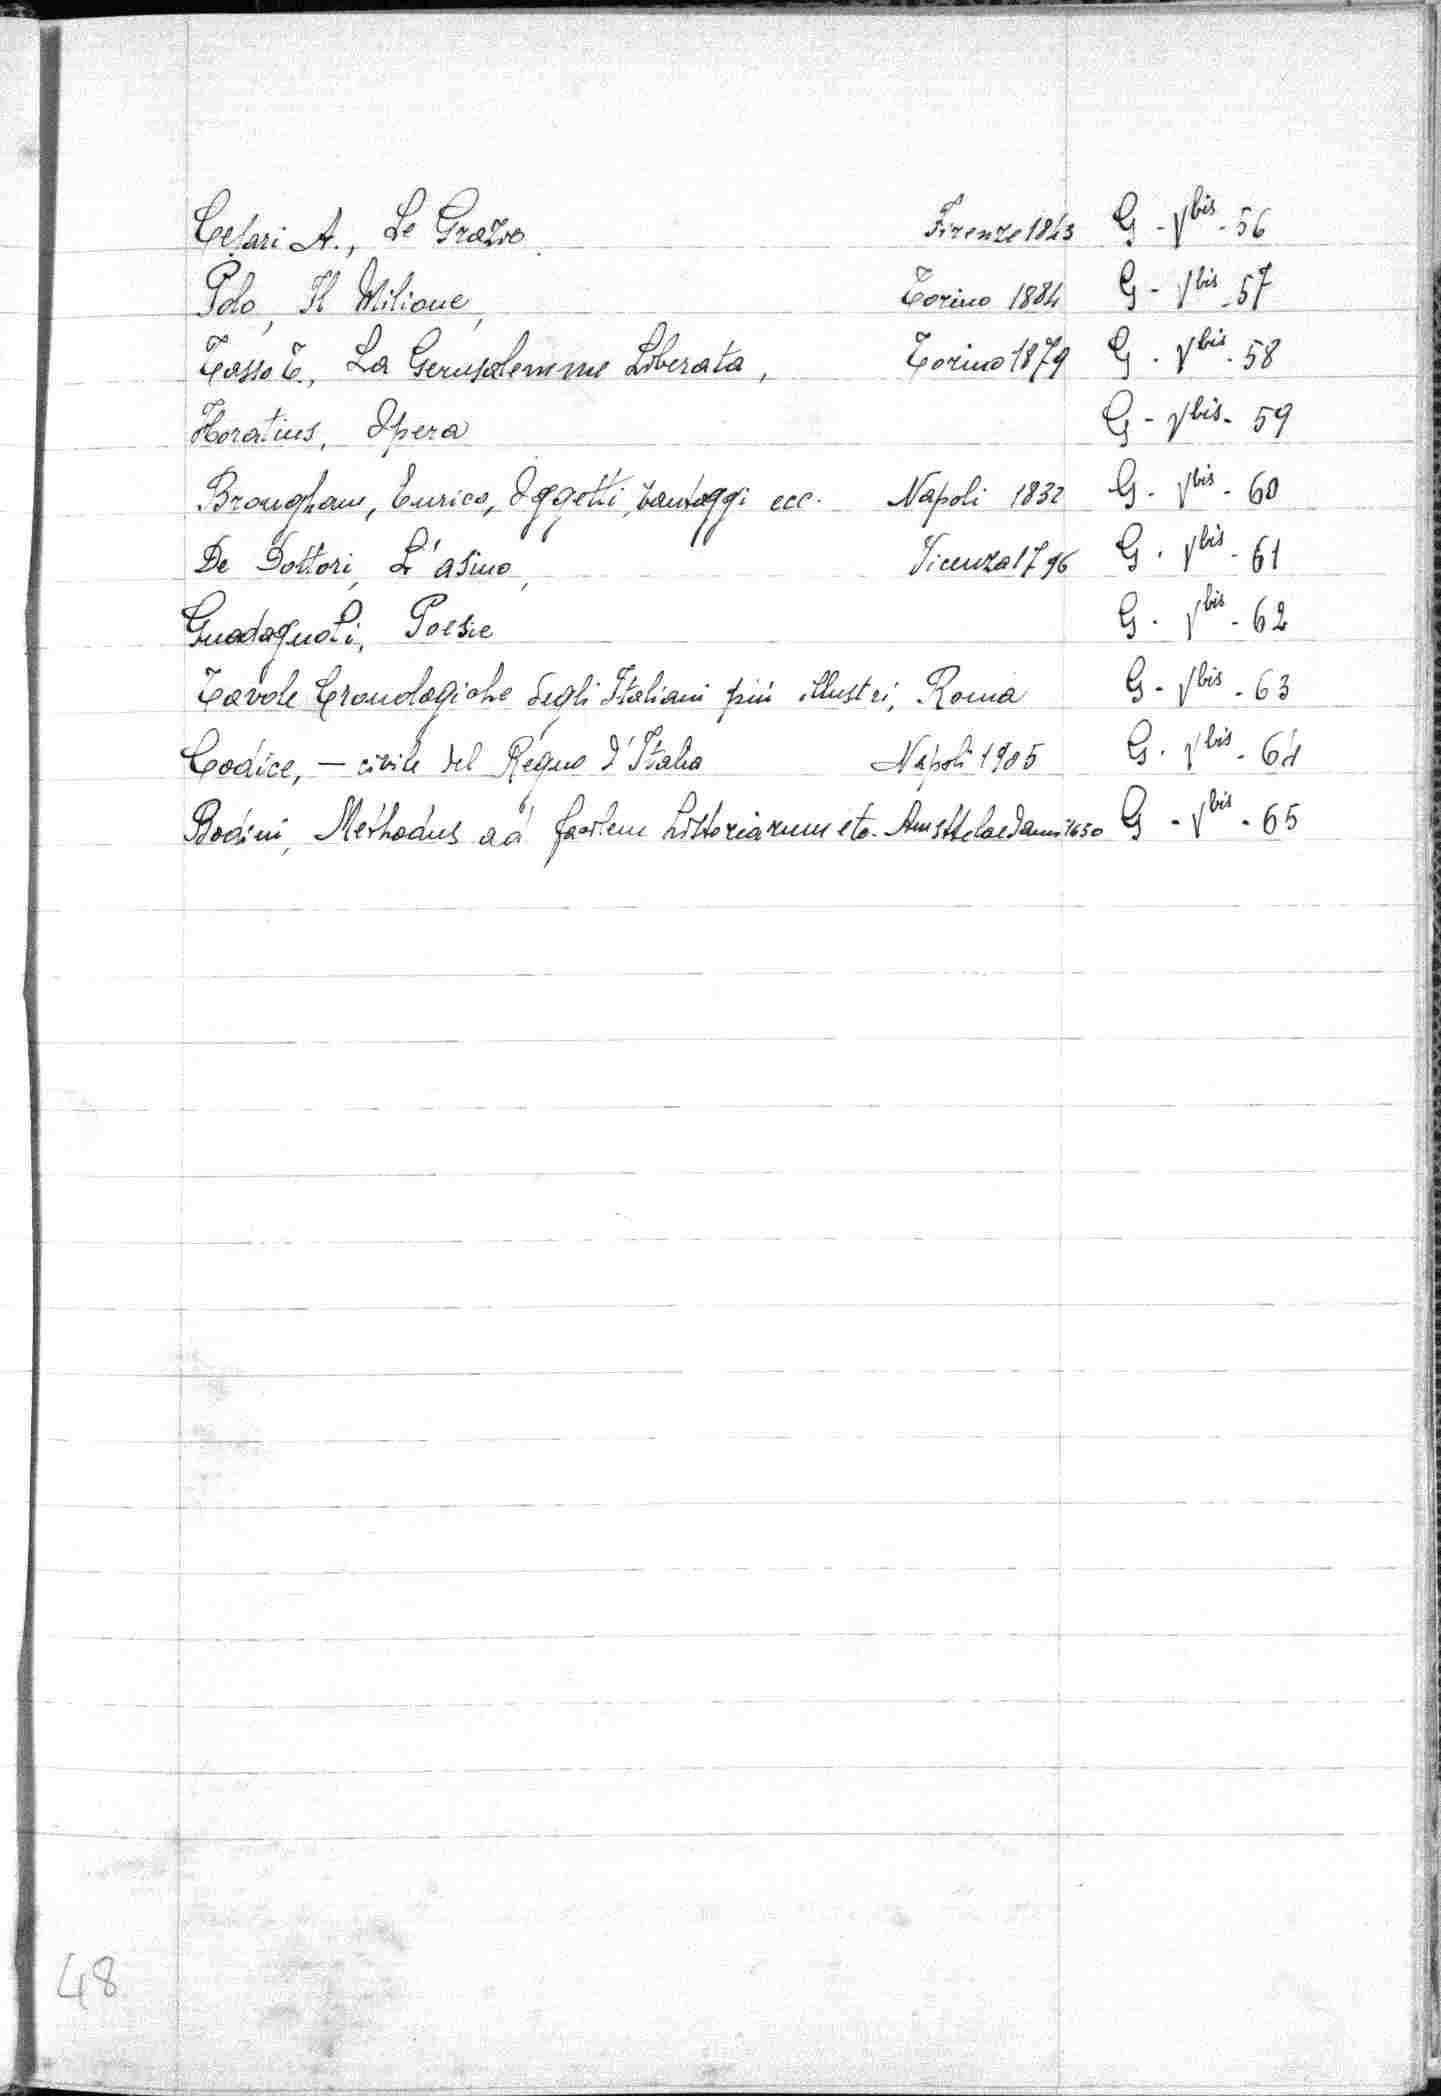 Cesari A., Le Grazie. Firenze 1843 G - Vbis - 56
Polo, Il Milione, Torino 1884 G - Vbis - 57
Tasso T., La Gerusalemme Liberata, Torino 1879 G - Vbis - 58
Horatius, Opera G - Vbis - 59
Brougham, Enrico, Oggetti, vantaggi ecc. Napoli 1832 G - Vbis - 60
De Dottori, L'asino, Vicenza 1796 G - Vbis - 61
Guadagnoli, Poesie G - Vbis - 62
Tavole Cronologiche degli Italiani più illustri, Roma G - Vbis - 63
Codice, - civile del Regno d'Italia Napoli 1905 G - Vbis - 64
Bodini, Methodus ad facilem historiarum etc. Amsttelaedami 1650 G - Vbis - 65
48